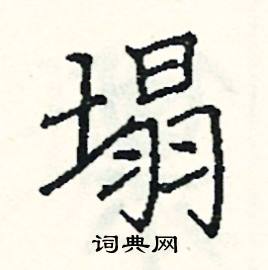 塌
词典网